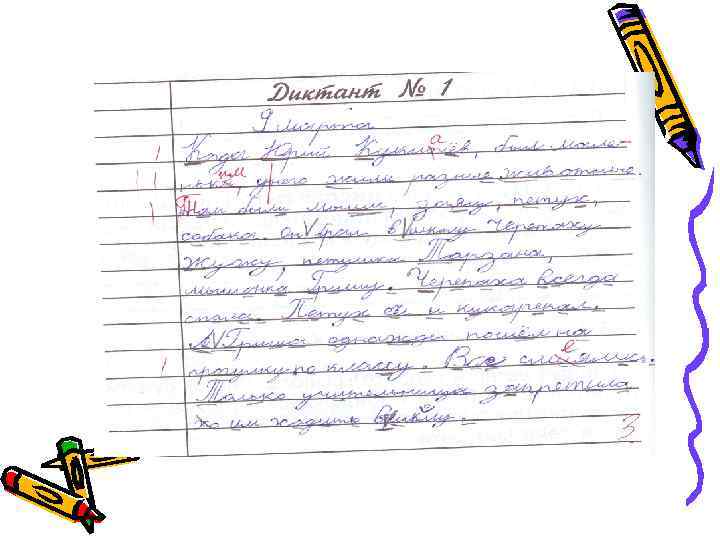 Диктант № 1
9 марта
Када Юрий Куклачёв, был мале-
ньким, унего жили разные животные.
Там были мыши, заяц, петух,
собака. Он брал вшколу Черепаху
Жужу, петушка Тарзана,
мышонка Гришу. Черепаха всегда
спала. Петух и кукарекал.
А Гриша однажды пошёл на
прогулку по класту. Все смеялись.
Только учительница запретила
им ходить вшколу.
3